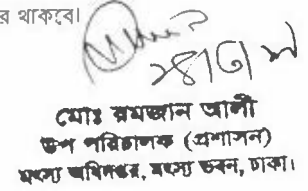 র থাকবে।
মোঃ রমজান আলী
উপ পরিচালক (প্রশাসন)
মৎস্য অধিদপ্তর, মৎস্য ভবন, ঢাকা।